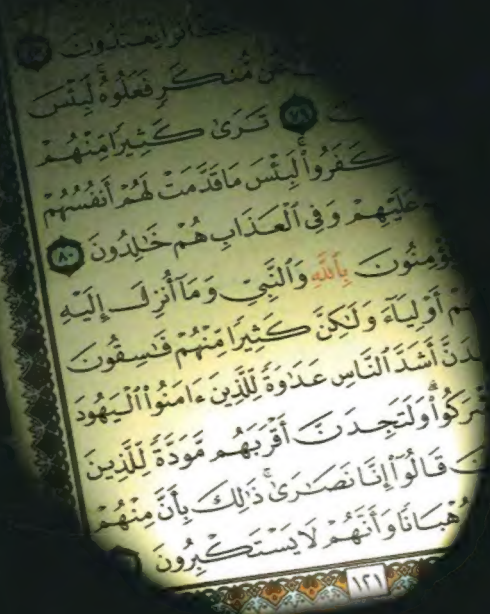 يَعْتَدُونَ ٧٨
مُّنكَرٍ فَعَلُوهُ ۚ لَبِئْسَ
٧٩ تَرَىٰ كَثِيرًا مِّنْهُمْ
كَفَرُوا ۚ لَبِئْسَ مَا قَدَّمَتْ لَهُمْ أَنفُسُهُمْ
عَلَيْهِمْ وَفِي الْعَذَابِ هُمْ خَالِدُونَ ٨٠
بِاللَّهِ وَالنَّبِيِّ وَمَا أُنزِلَ إِلَيْهِ
أَوْلِيَاءَ وَلَٰكِنَّ كَثِيرًا مِّنْهُمْ فَاسِقُونَ
أَشَدَّ النَّاسِ عَدَاوَةً لِّلَّذِينَ ءَامَنُوا الْيَهُودَ
وَلَتَجِدَنَّ أَقْرَبَهُم مَّوَدَّةً لِّلَّذِينَ
قَالُوا إِنَّا نَصَارَىٰ ۚ ذَٰلِكَ بِأَنَّ مِنْهُمْ
وَأَنَّهُمْ لَا يَسْتَكْبِرُونَ
١٢١